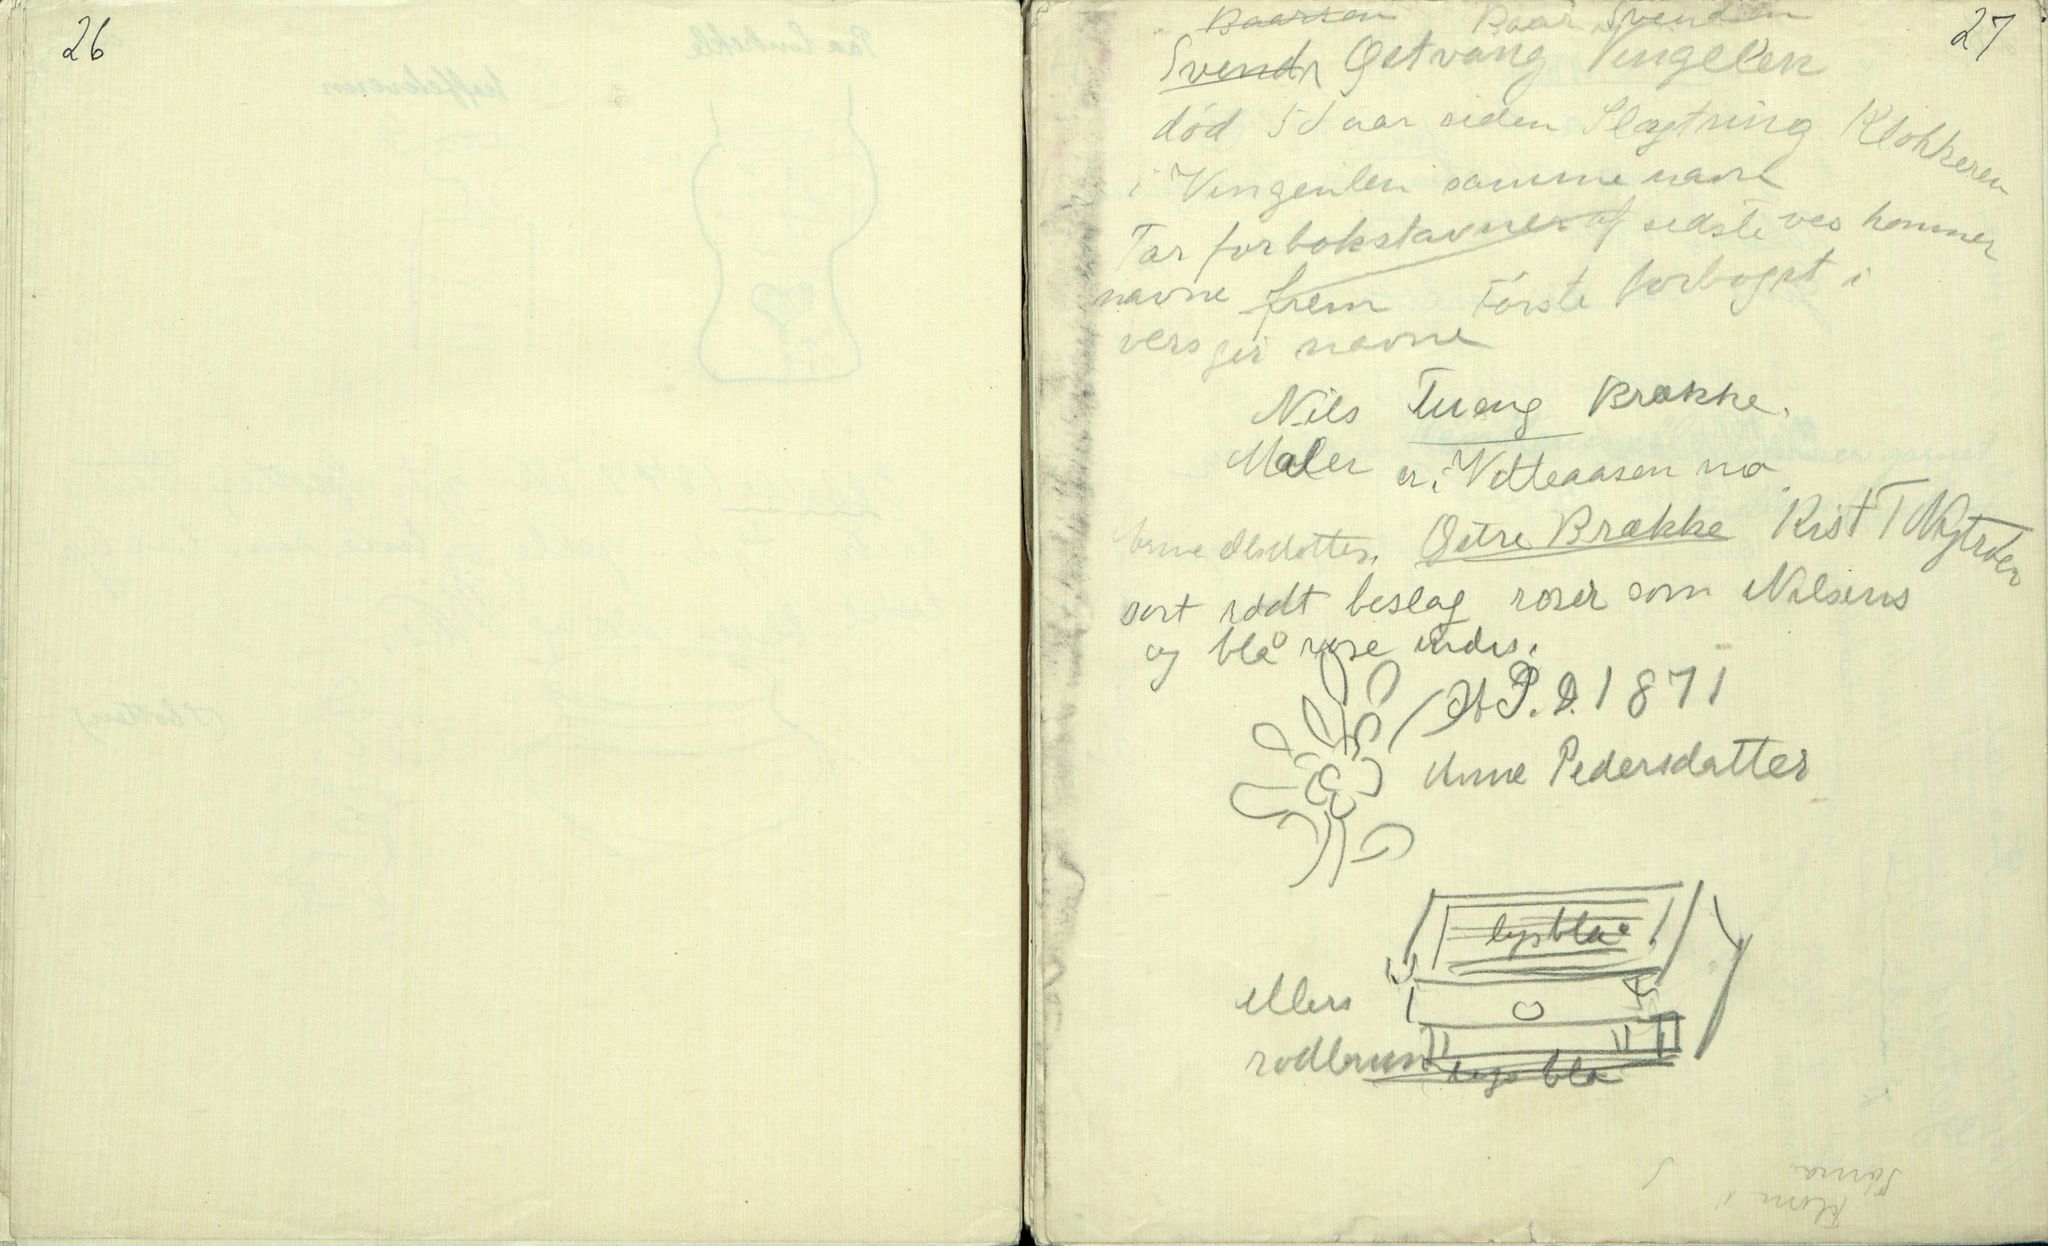 26
27
Baarsen Baar Svenden
Svend Østvang Vingelen
død 50 aar siden Slagtning Klokkeren
i Vingeulen samme navn
Tar forbokstavner af sidste ves kommer
navne frem Første forbogst i
vers gir navne
Nils Tueng Brække.
Maler er i Vetteaasen no
Anne Olsdatter. Østre Brække Rist T Nytrøen
sort rødt beslag roser som Nilsens
og blå rose indv.
A P. D. 1871
Anne Pedersdatter
lysblaa
ellers
rødbrun lys blå